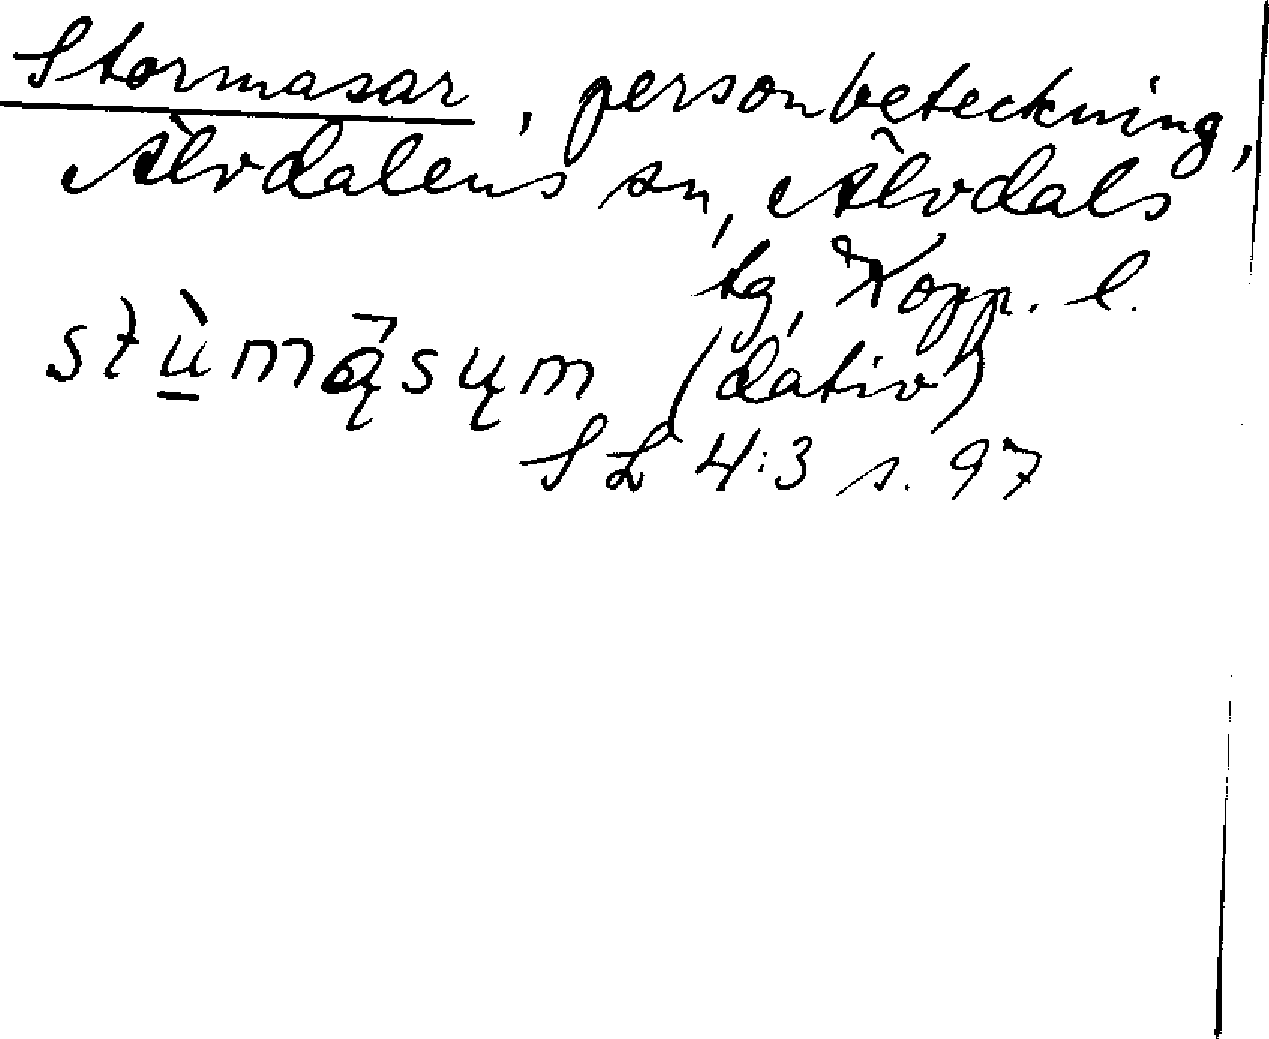 Stormasar, personbeteckning,
Älvdalens sn, Älvdals
tg, Kopp. l.
stù̲mą̄̀sųm (dativ)
SL 4:3 s. 97